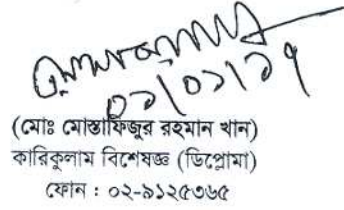 ০১/০১/১৭
(মোঃ মোস্তাফিজুর রহমান খান)
কারিকুলাম বিশেষজ্ঞ (ডিপ্লোমা)
ফোন : ০২-৯১২৫৩৬৫